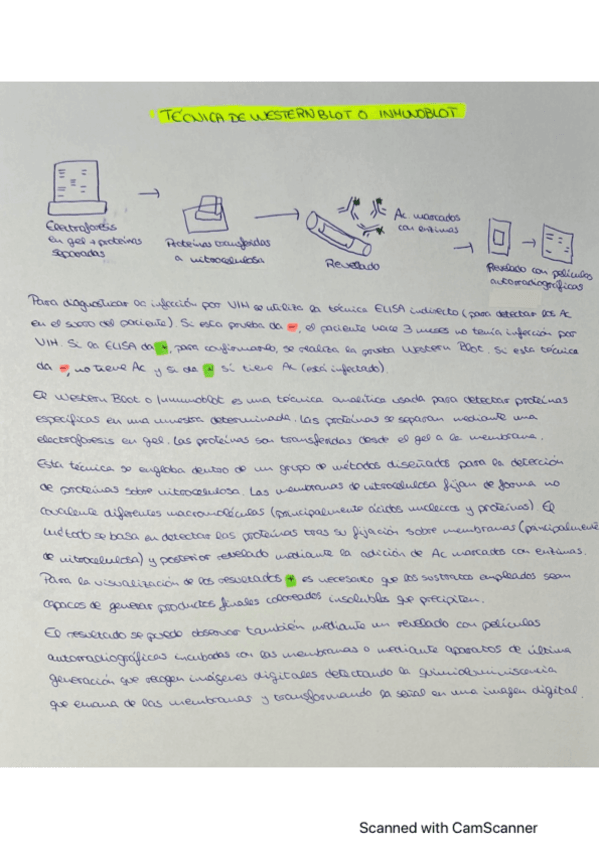 TÉCNICA DE WESTERN BLOT O INMUNOBLOT
Electroforesis
en gel + proteínas
separadas
Proteínas transferidas
a nitrocelulosa
Revelado
Ac marcados
con enzimas
Revelado con películas
autorradiográficas
Para diagnosticar la infección por VIH se utiliza la técnica ELISA indirecto (para detectar los Ac
en el suero del paciente). Si esta prueba da -, el paciente hace 3 meses no tenía infección por
VIH. Si la ELISA da +, para confirmarlo, se realiza la prueba Western Blot. Si esta técnica
da -, no tiene Ac y si da + sí tiene Ac (está infectado).
El Western Blot o Inmunoblot es una técnica analítica usada para detectar proteínas
específicas en una muestra determinada. Las proteínas se separan mediante una
electroforesis en gel. Las proteínas son transferidas desde el gel a la membrana.
Esta técnica se engloba dentro de un grupo de métodos diseñados para la detección
de proteínas sobre nitrocelulosa. Las membranas de nitrocelulosa fijan de forma no
covalente diferentes macromoléculas (principalmente ácidos nucleicos y proteínas). El
método se basa en detectar las proteínas tras su fijación sobre membranas (principalmente
de nitrocelulosa) y posterior revelado mediante la adición de Ac marcados con enzimas.
Para la visualización de los resultados + es necesario que los sustratos empleados sean
capaces de generar productos finales coloreados insolubles que precipiten.
El resultado se puede observar también mediante un revelado con películas
autorradiográficas incubadas con las membranas o mediante aparatos de última
generación que recogen imágenes digitales detectando la quimioluminiscencia
que emana de las membranas y transformando la señal en una imagen digital.
Scanned with CamScanner